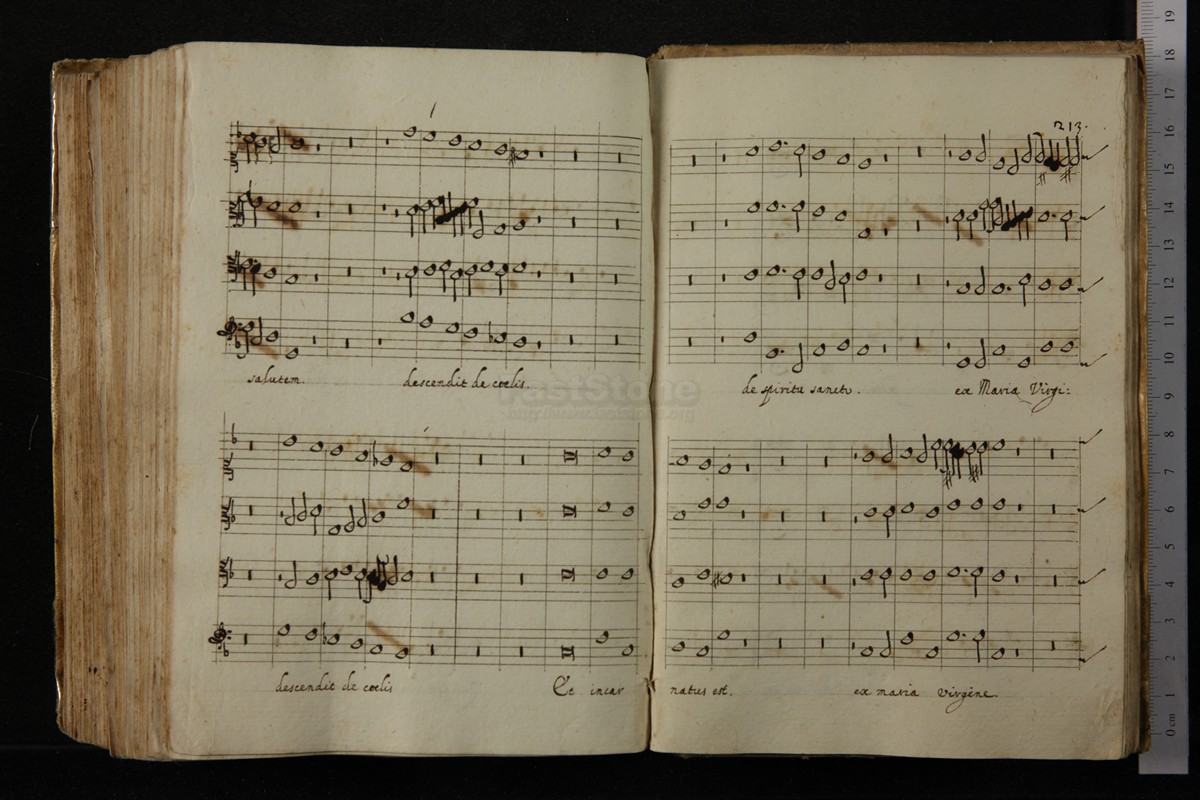 213.
salutem. descendit de coelis.
de spiritu sancto. ex Maria Virgi:
descendit de coelis Et incar
natus est. ex maria virgine.
FastStone
19
18
17
16
15
14
13
12
11
10
9
8
7
6
5
4
3
2
1
0 cm